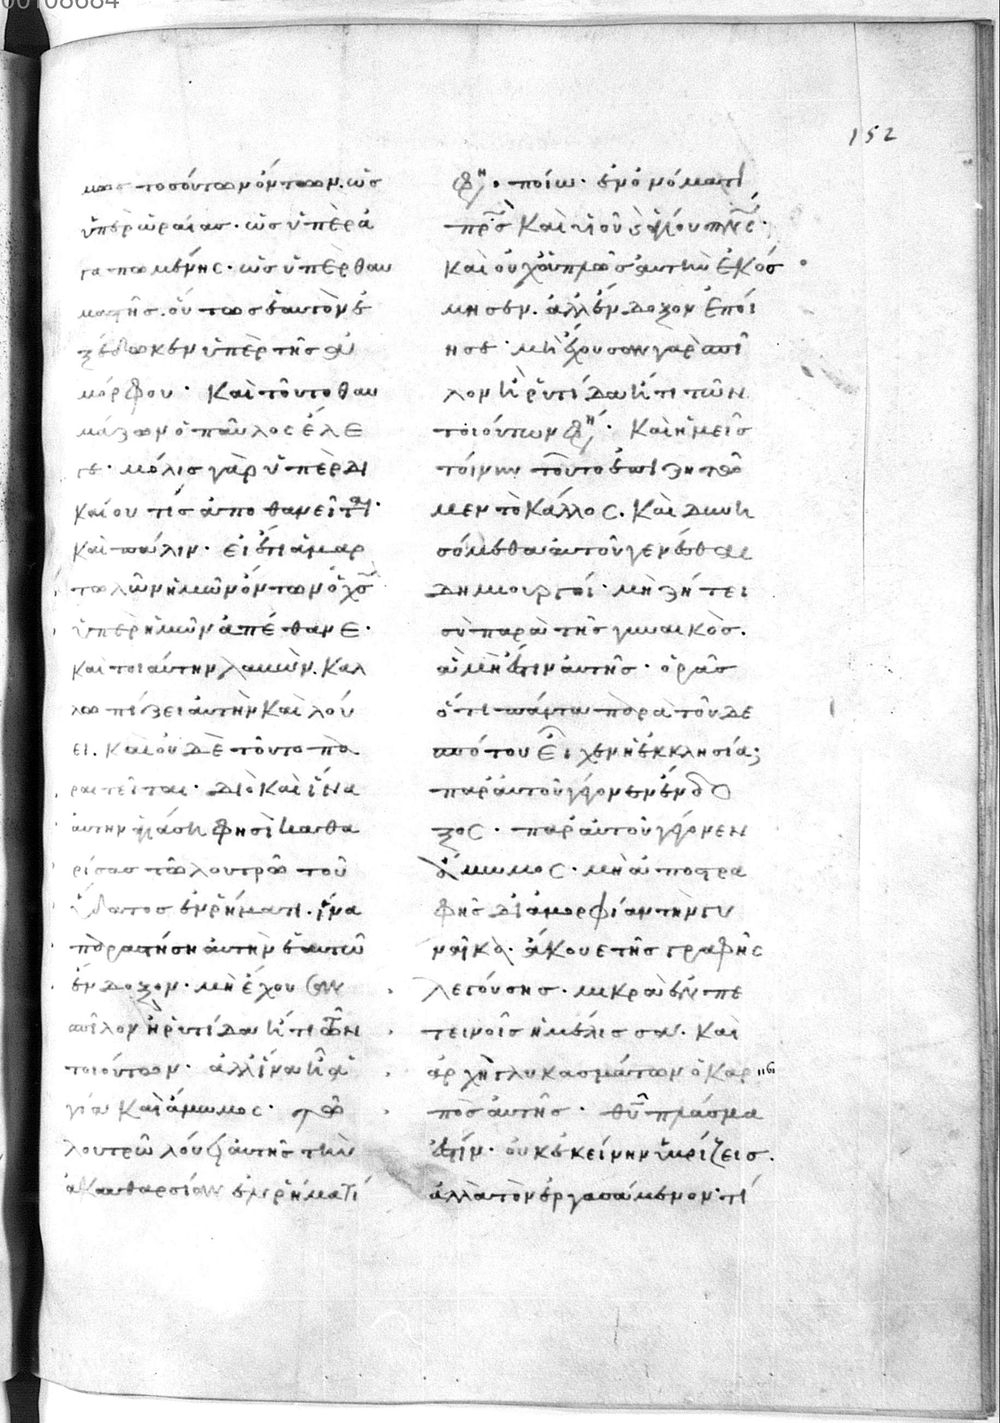 00108684
152
μωσ τοσούτων όντων. ὡσ
ὑπὲρ ὡραίασ. ὡσ ὑπὲρ ἀ
γαπωμένησ. ὡσ ὑπὲρ θαυ
μαστῆσ. οὕτωσ ἑαυτὸν ἐ
ξέδωκεν ὑπὲρ τῆσ ἀ
μόρφου. Καὶ τοῦτο θαυ
μάζων ὁ παῦλοσ ἔλε
γε. μόλισ γὰρ ὑπὲρ δι
καίου τίσ ἀποθανεῖται.
καὶ πάλιν. εἰ ἔτι ἁμαρ
τωλῶν ἡμῶν ὄντων ὁ χσ
ὑπὲρ ἡμῶν ἀπέθανε.
καὶ τοιαύτην λαβὼν. καλ
λωπίζει αὐτὴν καὶ λού
ει. καὶ οὐδὲ τοῦτο πα
ραιτεῖται. διὸ καὶ ἵνα
αὐτὴν ἁγιάση φησὶ καθα
ρίσασ τῶ λουτρῶ τοῦ
ὕδατοσ ἐν ρήματι. ἵνα
παραστήση αὐτὴν ἑαυτῶ
ἔνδοξον. μὴ ἔχουσαν
σπῖλον ἢ ρυτίδα ἤ τι τῶν
τοιούτων. ἀλλ' ἵνα ἦ ἁ
γία καὶ ἄμωμοσ. τῶ
λουτρῶ λούει αὐτῆσ τὴν
ἀκαθαρσίαν ἐν ρήματί
φη. ποίω. ἐν ὀνόματι
πρσ καὶ υἱοῦ καὶ ἁγίου πνσ.
καὶ οὐχ ἁπλῶσ αὐτὴν ἐκόσ
μησεν. ἀλλ' ἔνδοξον ἐποί
ησε. μὴ ἔχουσαν γὰρ σπῖ
λον ἢ ρυτίδα ἤ τι τῶν
τοιούτων φη. Καὶ ἡμεῖσ
τοίνυν τοῦτο ἐπιζητῶ
μεν τὸ κάλλοσ. καὶ δυνη
σόμεθα αὐτοῦ γενέσθαι
δημιουργοί. μὴ ζήτει
σὺ παρὰ τῆσ γυναικὸσ.
ἃ μὴ ἔστιν αὐτῆσ. ὁρᾶσ
ὅτι πάντα παρὰ τοῦ δε
σπότου εἶχεν ἡ ἐκκλησία;
παρ' αὐτοῦ γέγονεν ἔνδο
ξοσ. παρ' αὐτοῦ γέγονεν
ἄμωμοσ. μὴ ἀποστρα
φῆσ δι' ἀμορφίαν τὴν γυ
ναῖκα. ἄκουε τῆσ γραφῆσ
λεγούσησ. μικρὰ ἐν πε
τεινοῖσ ἡ μέλισσα. καὶ
ἀρχὴ γλυκασμάτων ὁ καρ
πὸσ αὐτῆσ. θυ πλάσμα
ἐστίν. οὐκ ἐκείνην ὑβρίζεισ.
ἀλλὰ τὸν ἐργασάμενον. τί